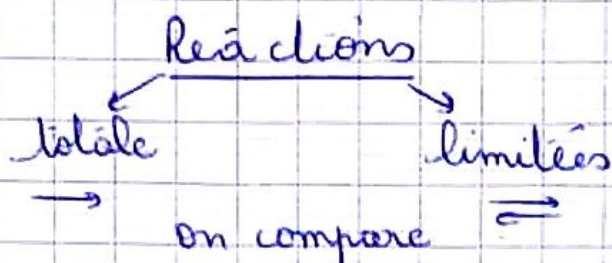 Réactions
totale limitées
→ ⇌
on compare